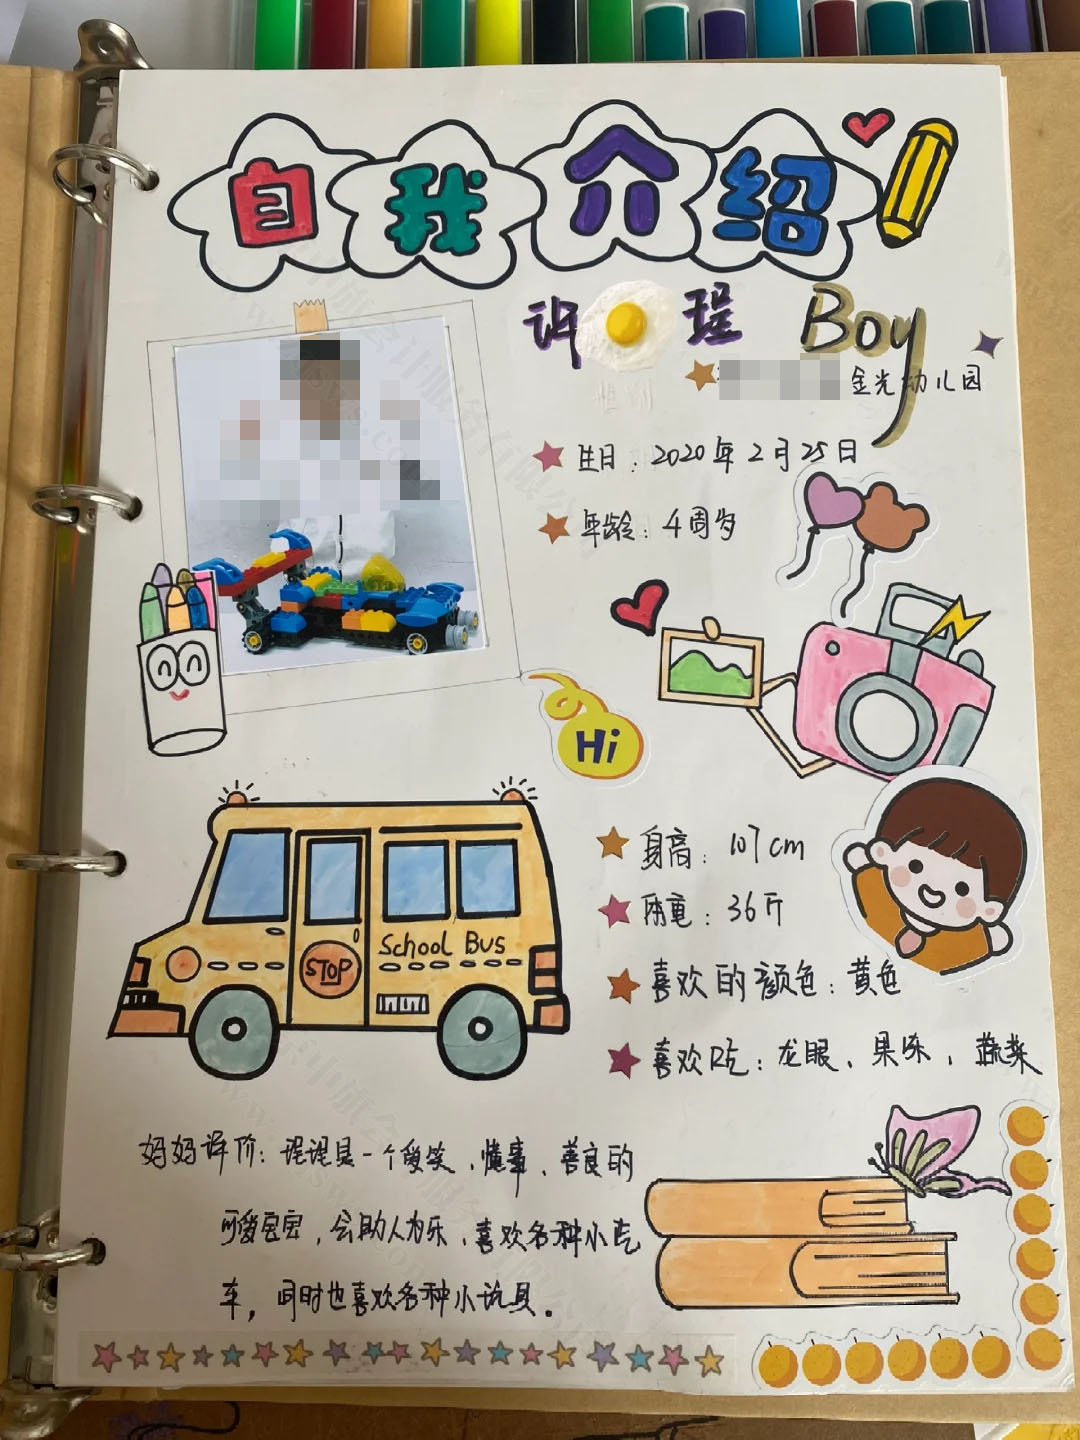 自我介绍
许 珵 Boy
金光幼儿园
生日：2020年2月25日
年龄：4周岁
Hi
身高：107cm
体重：36斤
School Bus
STOP
喜欢的颜色：黄色
喜欢吃：龙眼、果冻、蔬菜
妈妈评价：珵珵是一个爱笑、懂事、善良的
可爱宝宝，会助人为乐、喜欢各种小汽
车，同时也喜欢各种小玩具。